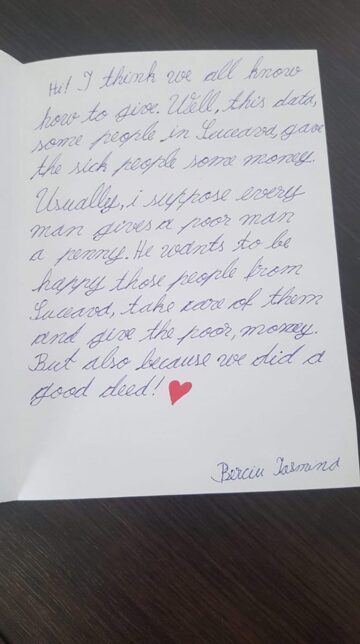 Hi! I think we all know
how to give. Well, this data,
some people in Suceava, gave
the sick people some money.
Usually, i suppose every
man gives a poor man
a penny. He wants to be
happy those people from
Suceava, take care of them
and give the poor, money.
But also because we did a
good deed!
Berciu Iasmina